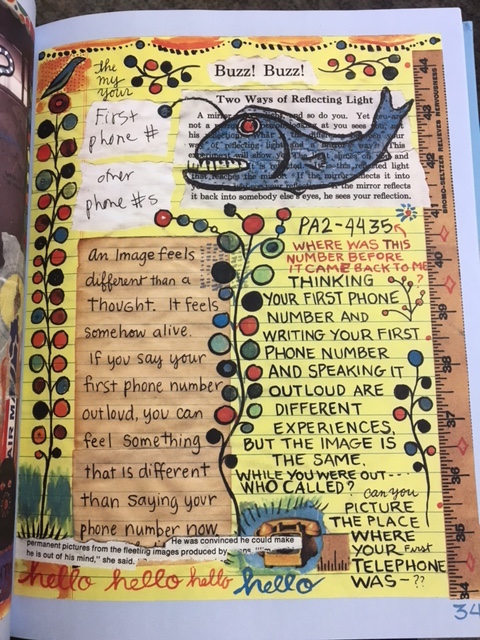 Buzz! Buzz!
the
my
your
First
phone #
other
phone #s
Two Ways of Reflecting Light
A mirror
and so do you. Yet you are
not a
at you sees
his
your
way of reflecting light
This
experiment will allow you
and
reflected light
that reaches the mirror. If the mirror reflects it into
the mirror reflects
it back into somebody else's eyes, he sees your reflection.
PA2-4435
WHERE WAS THIS
NUMBER BEFORE
IT CAME BACK TO ME
?
An Image feels
different than a
Thought. It feels
somehow alive.
If you say your
first phone number
outloud, you can
feel something
that is different
than saying your
phone number now
THINKING
YOUR FIRST PHONE
NUMBER AND
WRITING YOUR FIRST
PHONE NUMBER
AND SPEAKING IT
OUTLOUD ARE
DIFFERENT
EXPERIENCES,
BUT THE IMAGE IS
THE SAME.
WHILE YOU WERE OUT----
WHO CALLED?
can you
PICTURE
THE PLACE
WHERE
YOUR First
TELEPHONE
WAS-??
He was convinced he could make
permanent pictures from the fleeting images produced by
he is out of his mind," she said.
hello hello hello hello
BROMO-SELTZER RELIEVES NERVOUSNESS
44
43
42
41
39
38
37
36
35
34
34
AIR MA